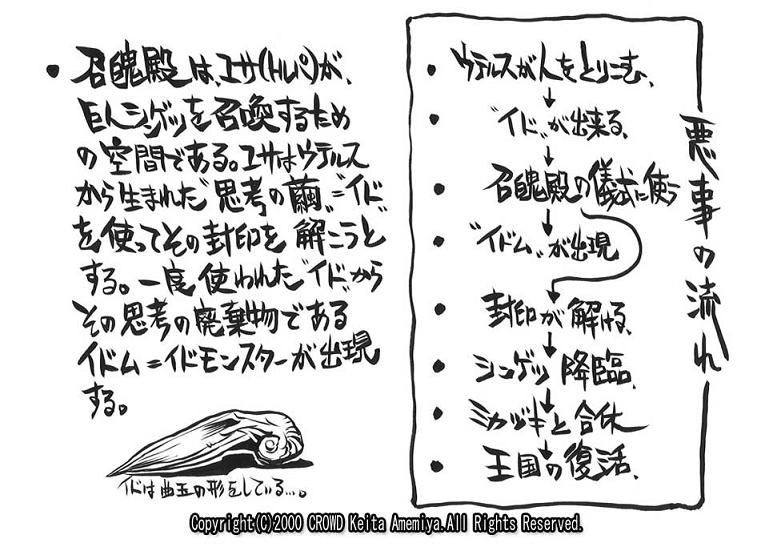 • 召醜殿は、ユサ(トルパ)が、
巨人シンゲツを召喚するため
の空間である。ユサはウテルス
から生まれた"思考の繭"="イド"
を使ってその封印を解こうと
する。一度使われた"イド"から
その思考の廃棄物である
イドム=イドモンスターが出現
する。
イドは曲玉の形をしている…。
悪事の流れ
• ウテルスが人をとりこむ、
↓
• "イド"が出来る、
↓
• 召醜殿の儀式に使う
↓
• "イドム"が出現
↓
• 封印が解ける、
↓
• シンゲツ降臨、
↓
• ミカヅキと合体
↓
• 王国の復活、
Copyright(C)2000 CROWD Keita Amemiya.All Rights Reserved.